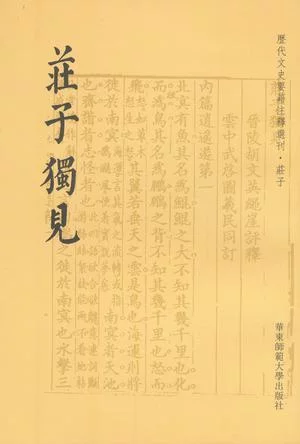 歷代文史要籍注釋選刊·莊子
莊子獨見
華東師範大學出版社
晉陵胡文英繩崖評釋
雲中武啓圖羲民同訂
內篇逍遙遊第一
北㝠有魚其名爲鯤鯤之大不知其幾千里也化
而爲鳥其名爲鵬鵬之背不知其幾千里也怒而
飛
其翼若垂天之雲是鳥也海運則將
徙於南㝠
南㝠者天池
也齊諧者志怪者也
之徙於南㝠也水擊三